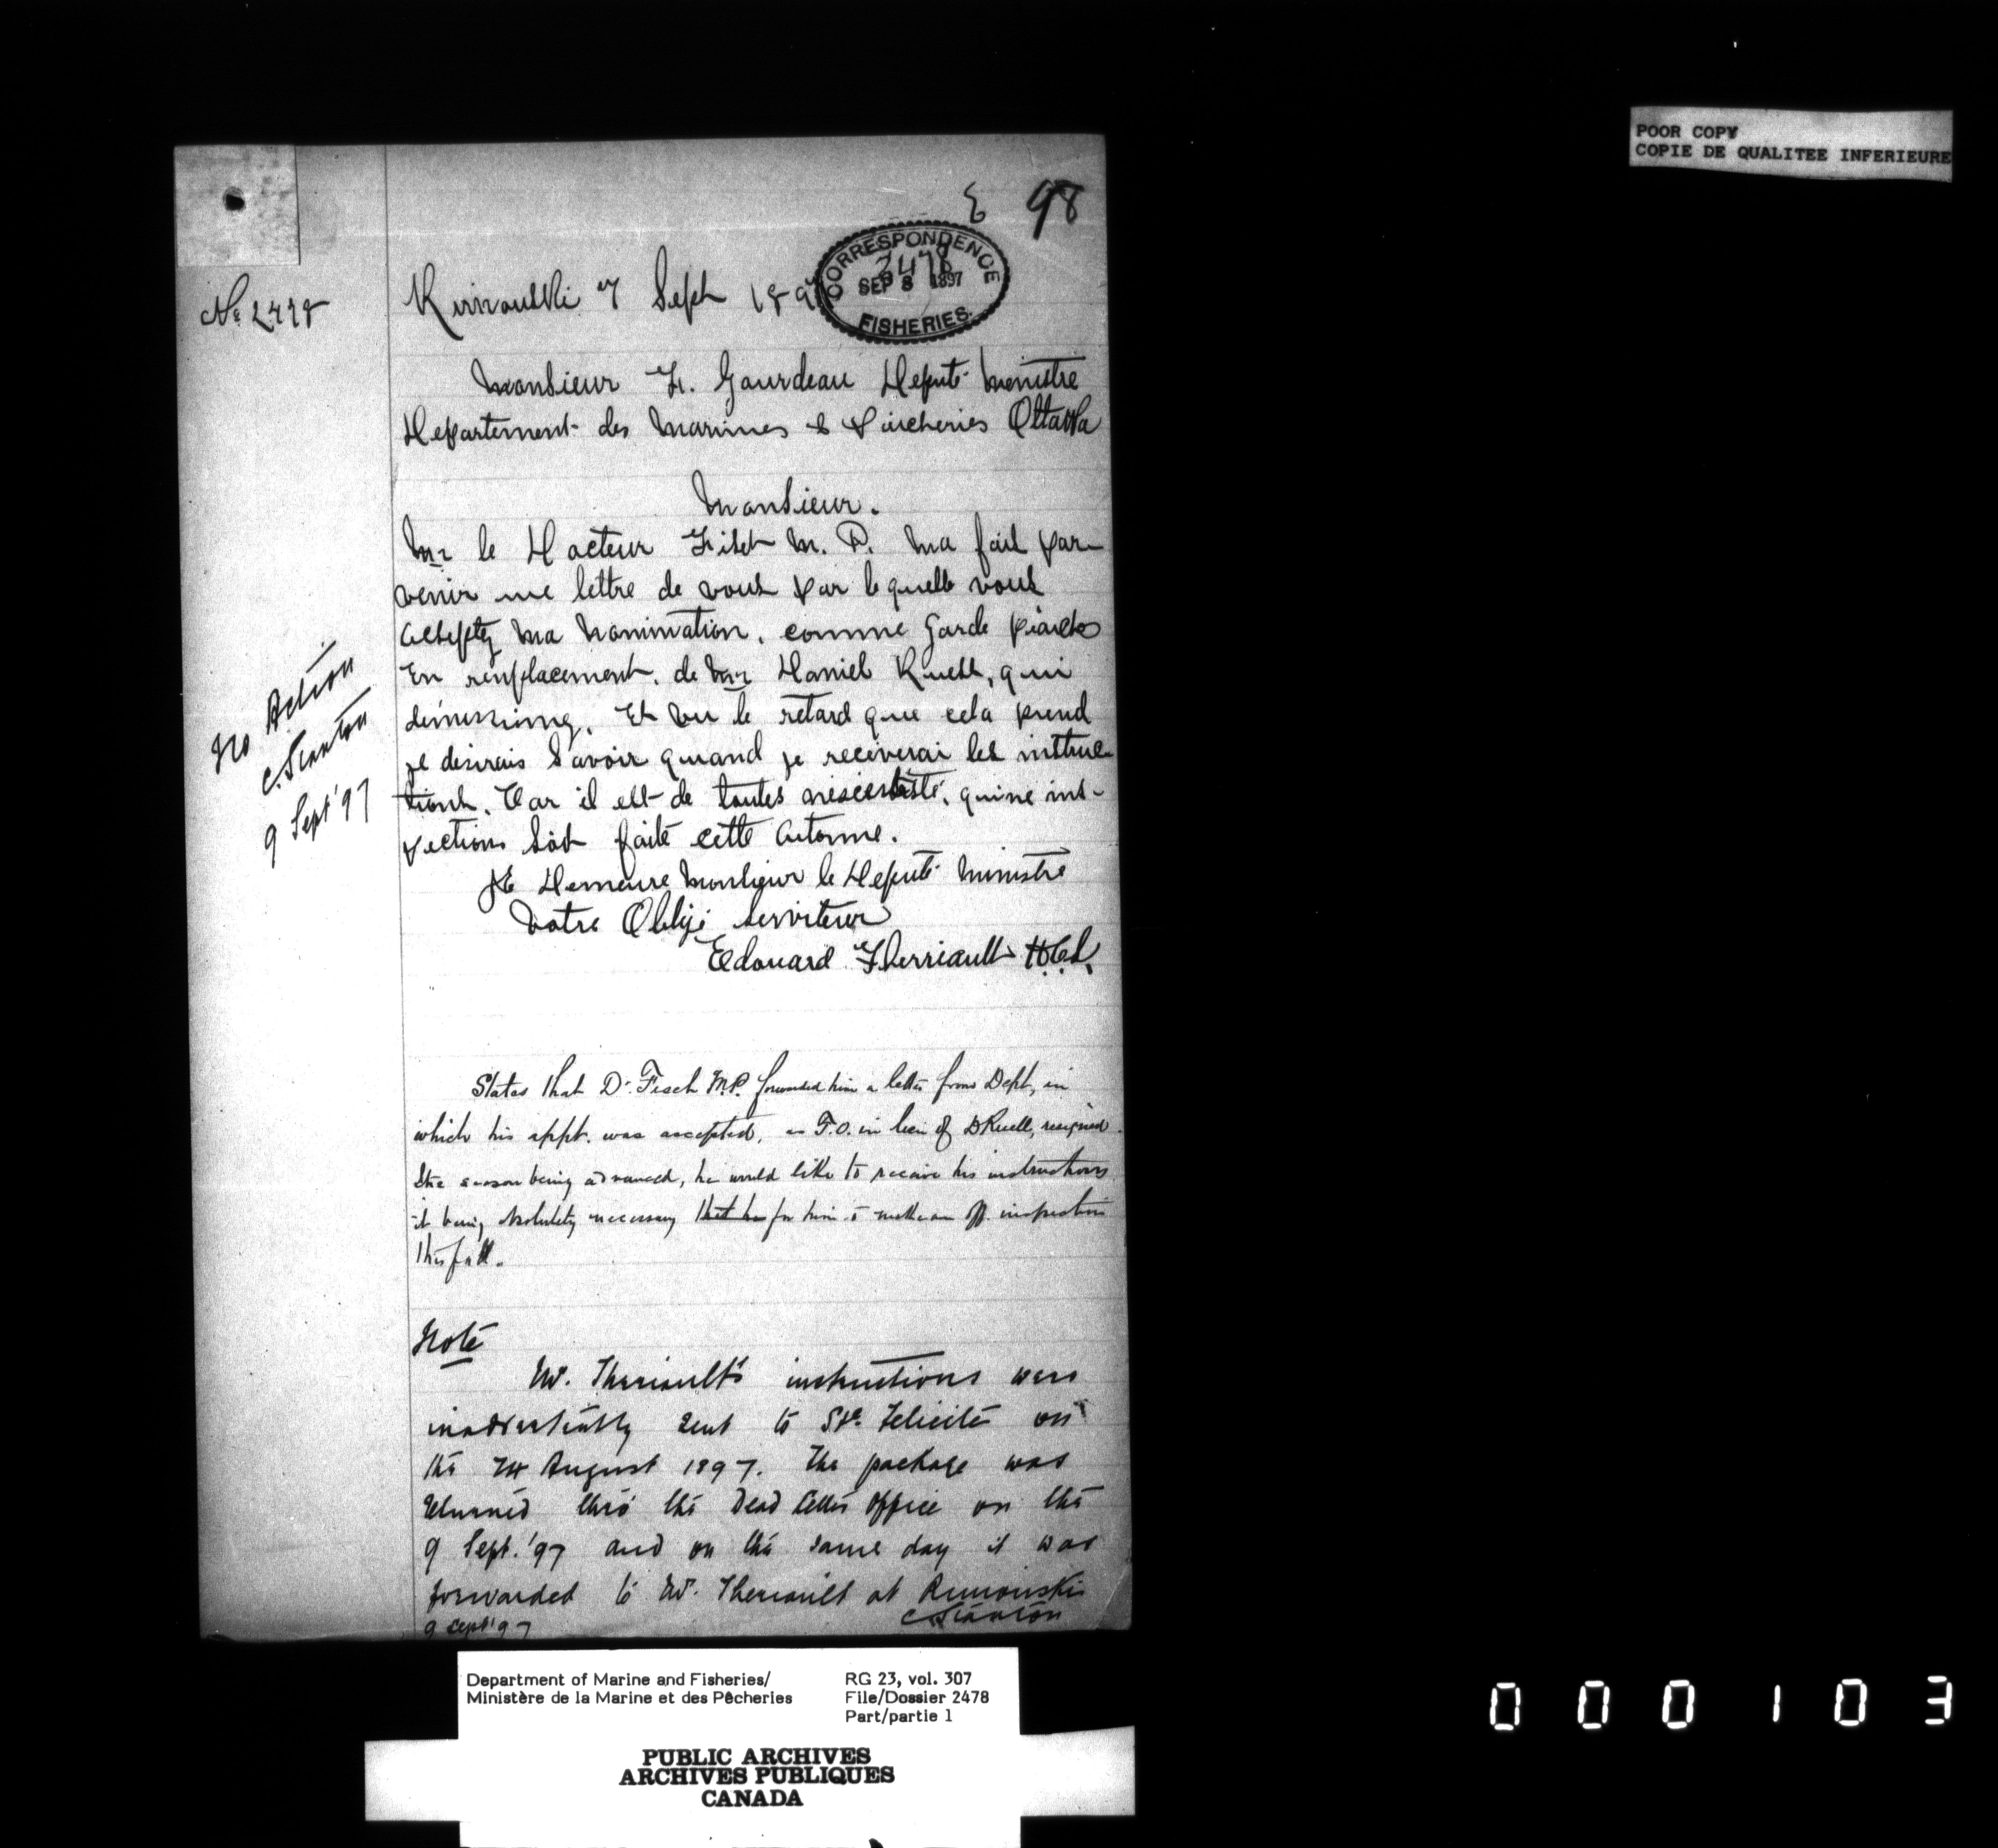 POOR COPY
COPIE DE QUALITEE INFERIEURE
E 98
CORRESPONDENCE
2478
SEP 8 1897
FISHERIES.
No 2478
Rimouski 7 Sept 1897
Monsieur F. Gourdeau Deputé Ministre
Departement des Marines & Paicheries Ottawa
Monsieur.
Mr le Docteur Fiset M. P. ma fait par-
venir une lettre de vous par lequelle vous
acceptez ma nomination, comme Garde
En remplacement, de Mr Daniel Ruest, qui
Et vu le retard que cela prend
je desirais Savoir quand je receverai les instruc-
tions. Car il est de toutes, quine ins-
pections soit faite cette Automne.
Je Demeure Monsieur le Deputé Ministre
Votre Obligé Serviteur
Edouard Therriault
No Action
C. Stanton
9 Sept '97
States that Dr. Fisch M.P. forwarded him a letter from Dept, in
which his appt. was accepted, as F.O. in lieu of D Ruell, resigned.
The season being advanced, he would like to receive his instructions
it being absolutely necessary that he for him to make an off. inspection
this fall.
Note
Mr. Theriault's instructions were
inadvertently sent to Ste. Felicité on
the 24 August 1897. The package was
returned thro' the Dead Letter Office on the
9 Sept. '97 and on the same day it was
forwarded to Mr. Theriault at Rimouski
C Stanton
9 Sept '97
Department of Marine and Fisheries/
Ministère de la Marine et des Pêcheries
RG 23, vol. 307
File/Dossier 2478
Part/partie 1
PUBLIC ARCHIVES
ARCHIVES PUBLIQUES
CANADA
000103